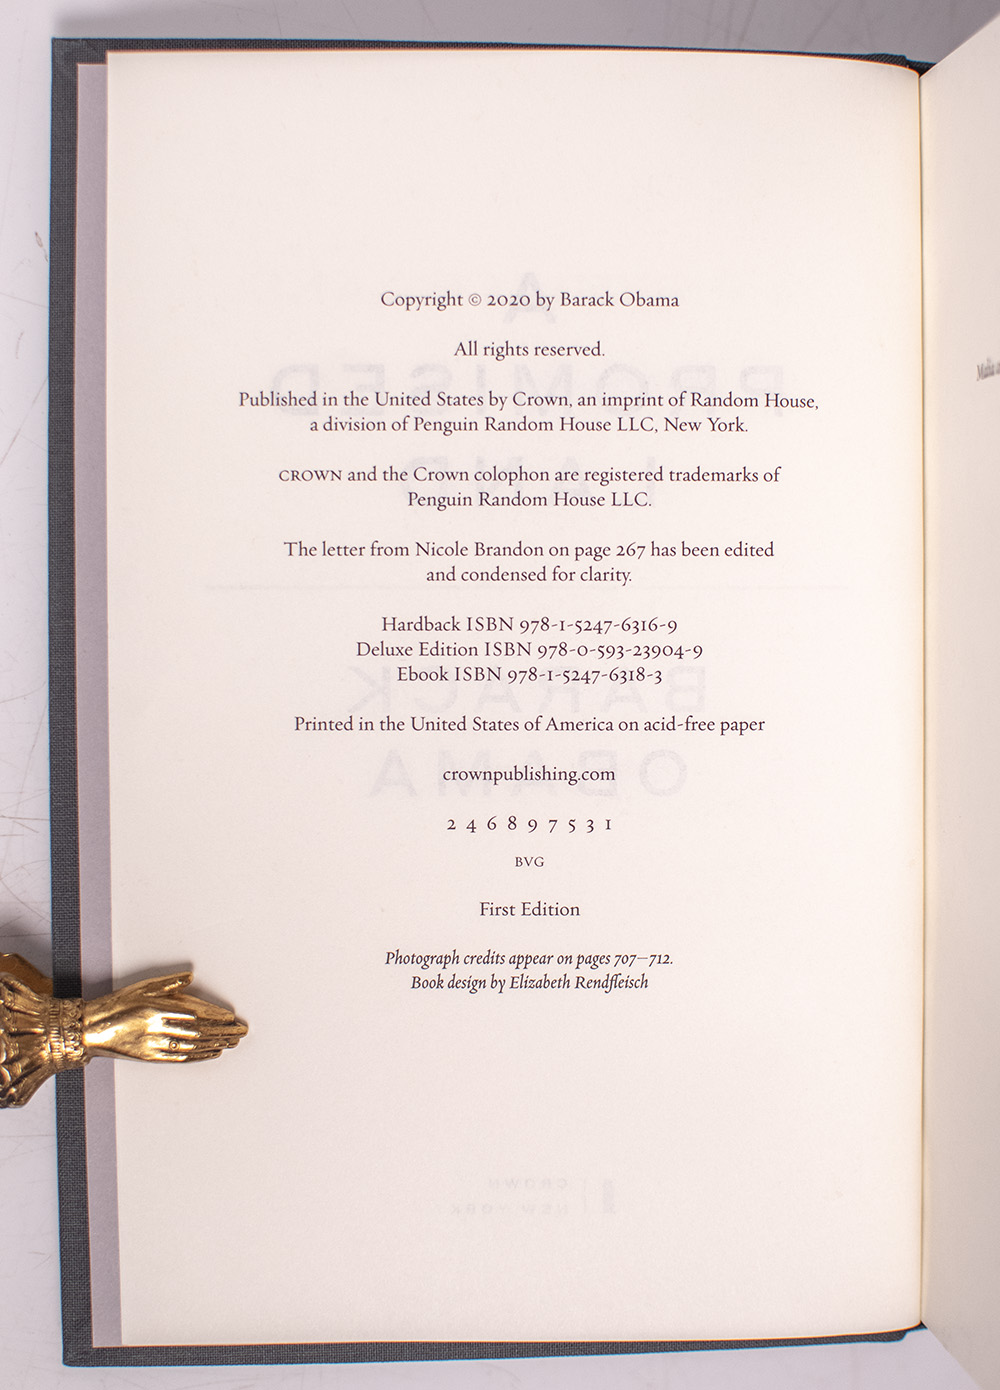 Copyright © 2020 by Barack Obama
All rights reserved.
Published in the United States by Crown, an imprint of Random House,
a division of Penguin Random House LLC, New York.
CROWN and the Crown colophon are registered trademarks of
Penguin Random House LLC.
The letter from Nicole Brandon on page 267 has been edited
and condensed for clarity.
Hardback ISBN 978-1-5247-6316-9
Deluxe Edition ISBN 978-0-593-23904-9
Ebook ISBN 978-1-5247-6318-3
Printed in the United States of America on acid-free paper
crownpublishing.com
2 4 6 8 9 7 5 3 1
BVG
First Edition
Photograph credits appear on pages 707–712.
Book design by Elizabeth Rendfleisch